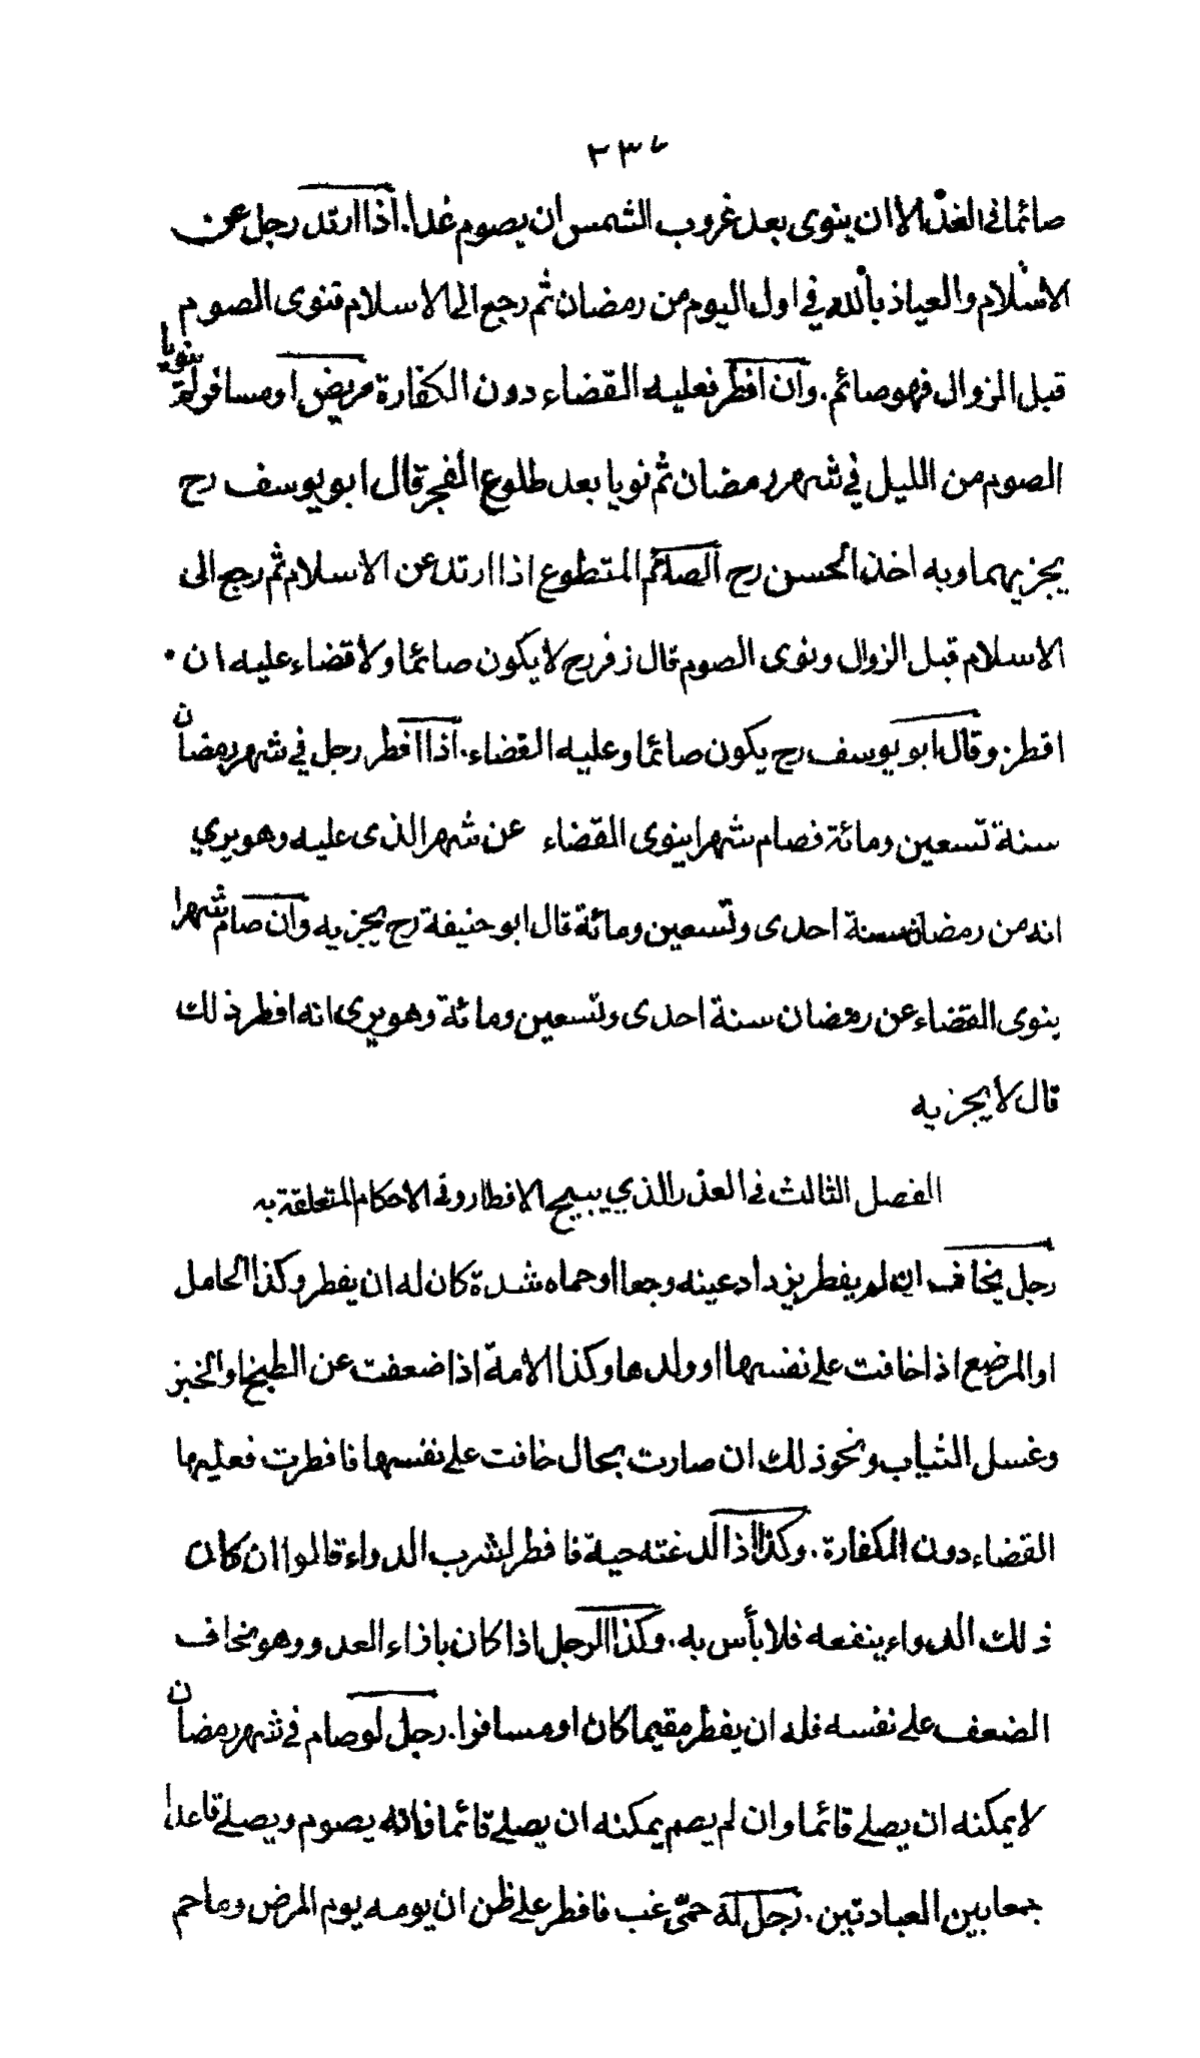 ٢٣٤
صائما في الغد الا ان ينوى بعد غروب الشمس ان يصوم غدا. اذا ارتد رجل عن
الاسلام والعياذ بالله في اول اليوم من رمضان ثم رجع الى الاسلام فنوى الصوم
قبل الزوال فهو صائم. وان افطر فعليه القضاء دون الكفارة مريض او مسافر لم ينويا
الصوم من الليل في شهر رمضان ثم نويا بعد طلوع الفجر قال ابو يوسف رح
يجزيهما وبه اخذ الحسن رح الصائم المتطوع اذا ارتد عن الاسلام ثم رجع الى
الاسلام قبل الزوال ونوى الصوم قال زفر رح لا يكون صائما ولا قضاء عليه ان
افطر. وقال ابو يوسف رح يكون صائما وعليه القضاء. اذا افطر رجل في شهر رمضان
سنة تسعين ومائة فصام شهرا ينوى القضاء عن شهر الذى عليه وهو يري
انه من رمضان سنة احدى وتسعين ومائة قال ابو حنيفة رح يجزيه وان صام شهرا
ينوى القضاء عن رمضان سنة احدى وتسعين ومائة وهو يرى انه افطر ذلك
قال لا يجزيه
الفصل الثالث في العذر الذي يبيح الافطار وفي الاحكام المتعلقة به
رجل يخاف ان لم يفطر يزداد عينه وجعا او حماه شدة كان له ان يفطر وكذا الحامل
او المرضع اذا خافت على نفسها او ولدها وكذا الامة اذا ضعفت عن الطبخ او الخبز
وغسل الثياب ونحو ذلك ان صارت بحال خافت على نفسها فافطرت فعليها
القضاء دون الكفارة. وكذا اذا لدغته حية فافطر لشرب الدواء قالوا ان كان
ذلك الدواء ينفعه فلا بأس به. وكذا الرجل اذا كان باذاء العدو وهو يخاف
الضعف على نفسه فله ان يفطر مقيما كان او مسافرا. رجل لو صام في شهر رمضان
لا يمكنه ان يصلي قائما وان لم يصم يمكنه ان يصلي قائما فانه يصوم ويصلي قاعدا
جمعا بين العبادتين. رجل له حمى غب فافطر على ظن ان يومه يوم المرض وما حم